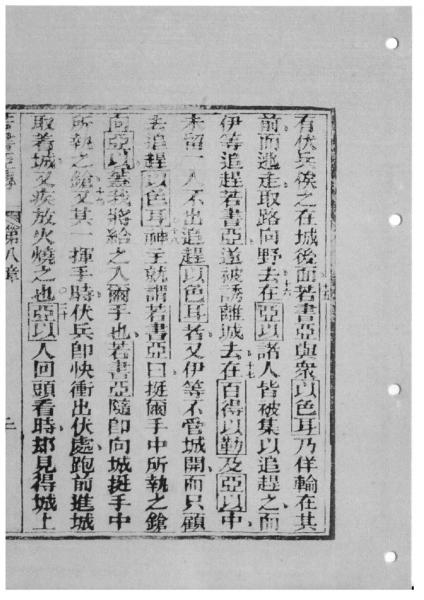 有伏兵俟之在城後面若書亞與眾以色耳乃佯輸在其
前而逃走取路向野去在亞以諸人皆被集以追趕之而
伊等追趕若書亞遂被誘離城去在百得以勒及亞以中
未留一人不出追趕以色耳者又伊等不管城開而只顧
去追趕以色耳神王就謂若書亞曰挺爾手中所執之鎗
向亞以蓋我將給之入爾手也若書亞隨卽向城挺手中
所執之鎗又其一揮手時伏兵卽快衝出伏處跑前進城
取着城又疾放火燒之也亞以人回頭看時却見得城上
第八章